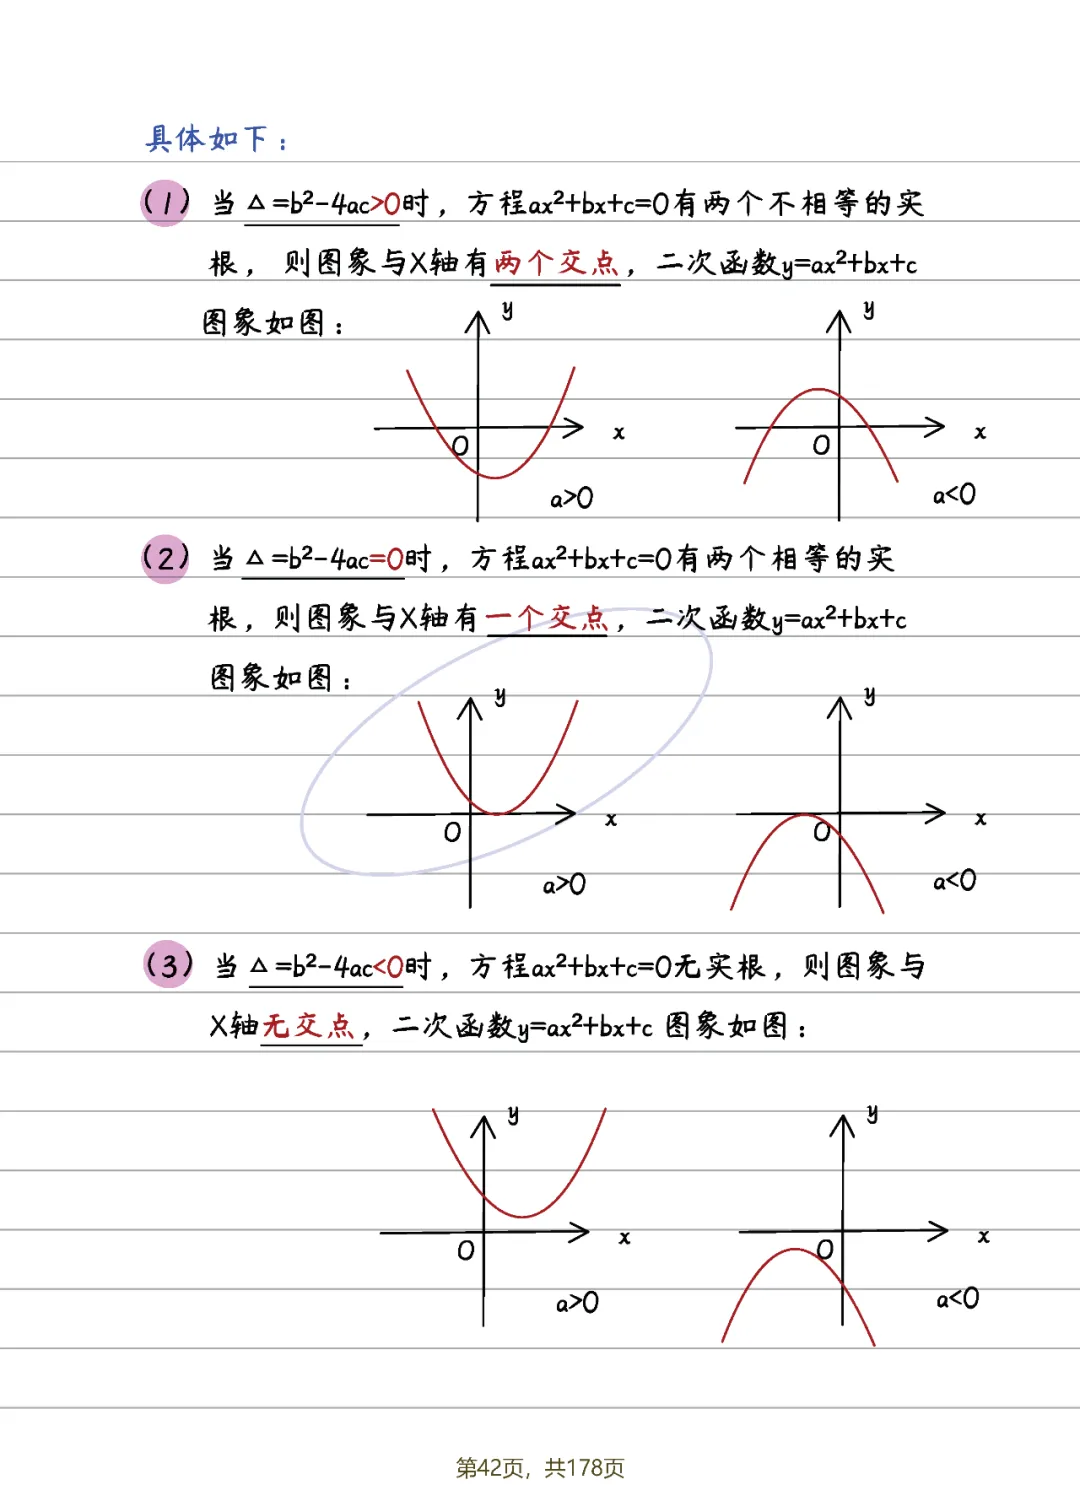 具体如下：
（1）当△=b²-4ac>0时，方程ax²+bx+c=0有两个不相等的实
根， 则图象与X轴有两个交点，二次函数y=ax²+bx+c
图象如图：
y
y
x
x
O
O
a>0
a<0
（2）当△=b²-4ac=0时，方程ax²+bx+c=0有两个相等的实
根，则图象与X轴有一个交点，二次函数y=ax²+bx+c
图象如图：
y
y
x
x
O
O
a>0
a<0
（3）当△=b²-4ac<0时，方程ax²+bx+c=0无实根，则图象与
X轴无交点，二次函数y=ax²+bx+c 图象如图：
y
y
x
x
O
O
a>0
a<0
第42页，共178页